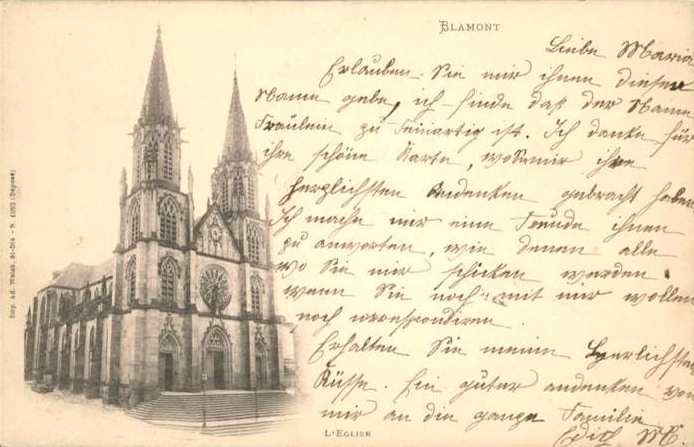 BLAMONT
Liebe Maria
Erlauben Sie mir ihnen diesen
Namen gebe, ich finde daß der Name
Fräulein zu ist. Ich danke für
ihre schöne Karte, wo mir ihre
herzlichsten Andenken gebracht haben
Ich mache mir eine Freude ihnen
zu anworten, wie denen alle
wo Sie mir schicken werden
wenn Sie noch mit mir wollen
noch
Erhalten Sie meinen herzlichsten
Küsse. Ein guter andenken von
mir an die ganze Familie
Edith
L'EGLISE
Imp. Ad. Weick, St-Dié - N. (Déposé)